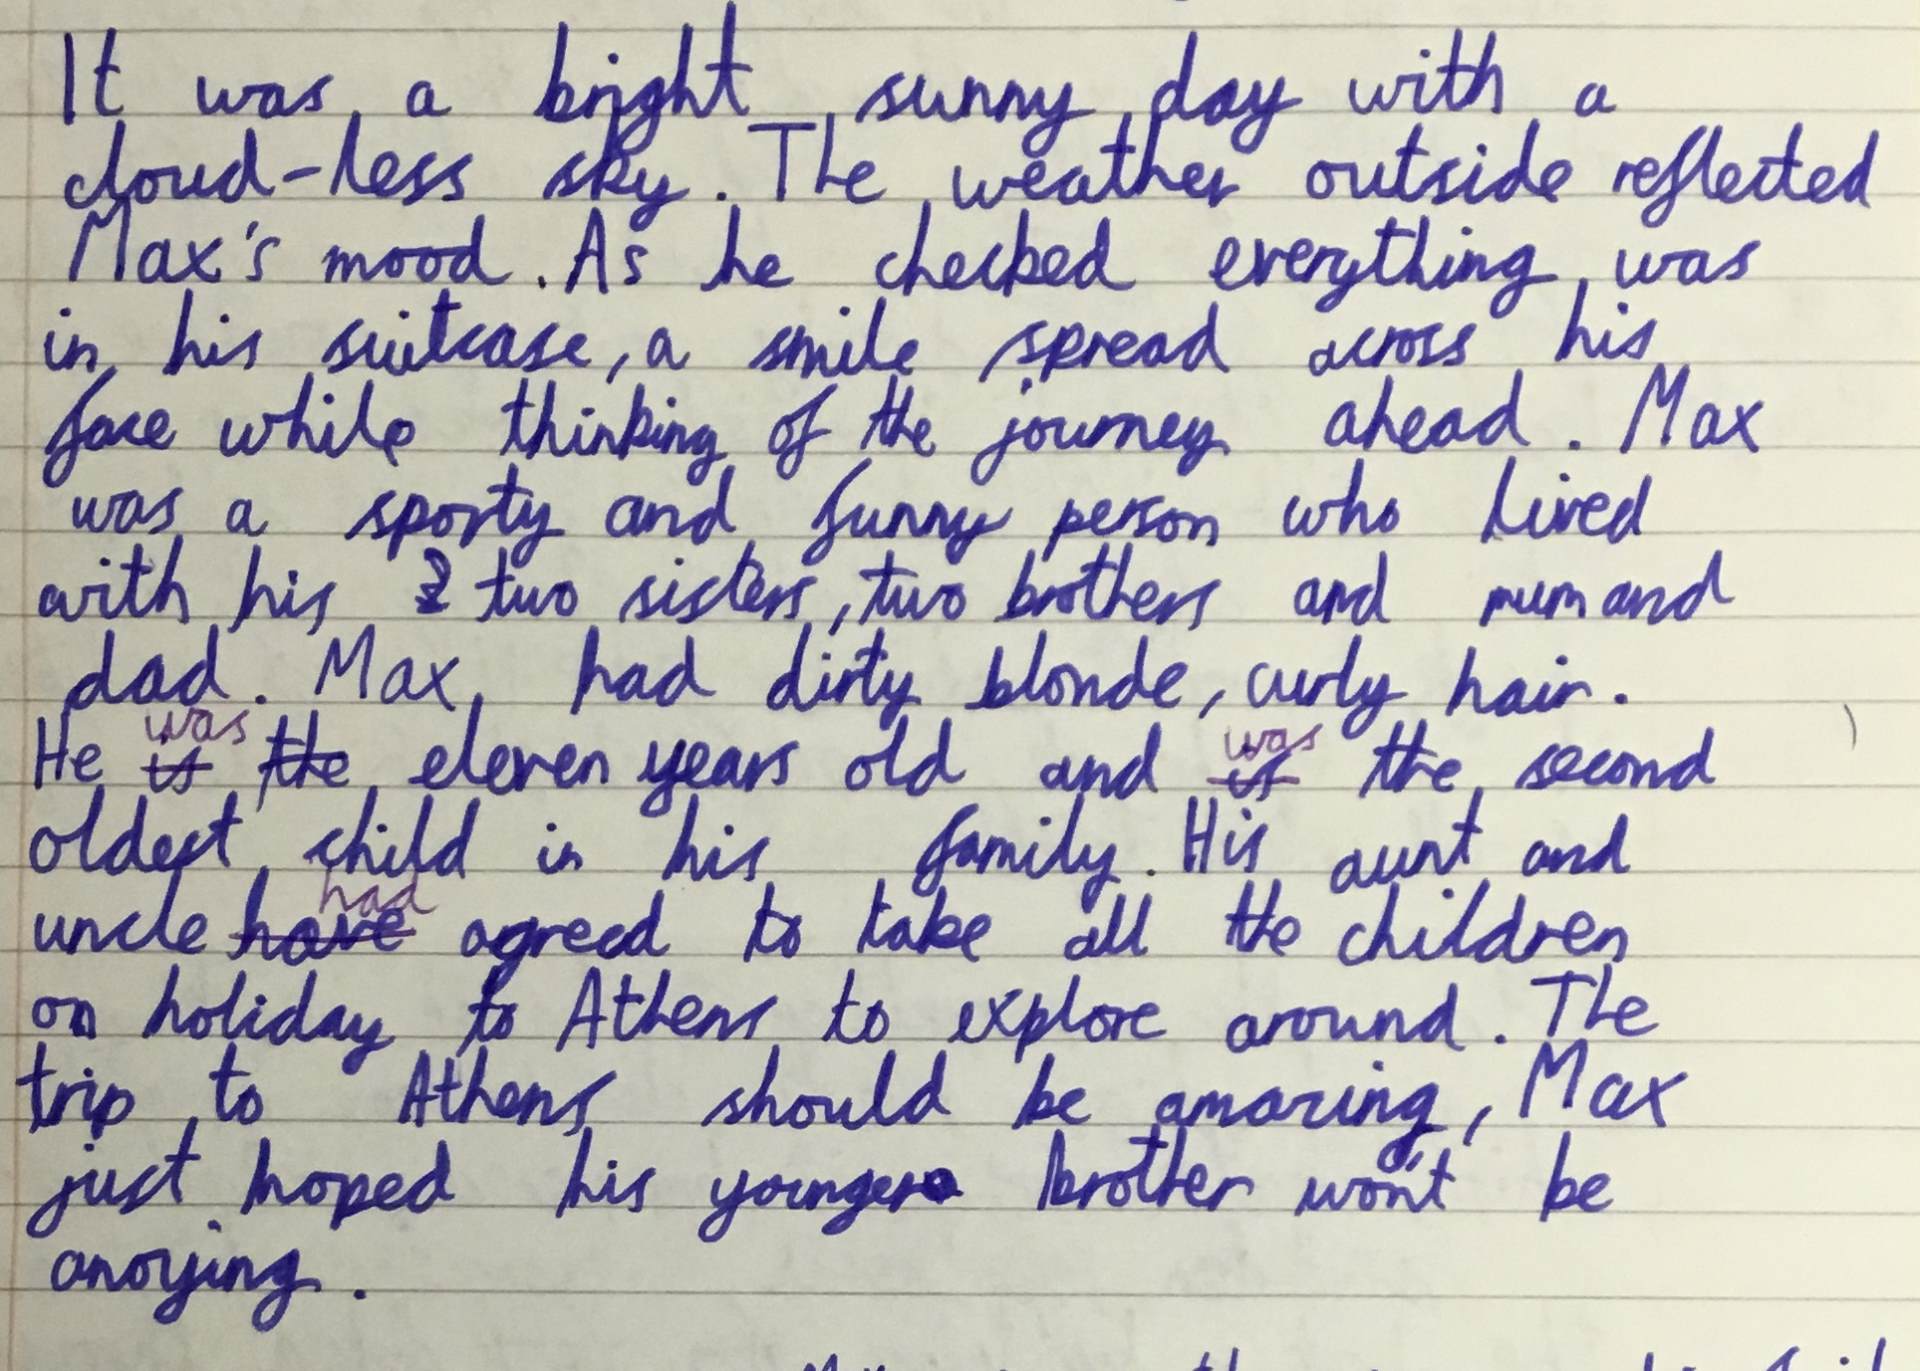 It was a bright sunny day with a
cloud-less sky. The weather outside reflected
Max's mood. As he checked everything was
in his suitcase, a smile spread across his
face while thinking of the journey ahead. Max
was a sporty and funny person who lived
with his 2 two sisters, two brothers and mum and
dad. Max had dirty blonde, curly hair.
was was
He is the eleven years old and is the second
oldest child in his family. His aunt and
had
uncle have agreed to take all the children
on holiday to Athens to explore around. The
trip to Athens should be amazing, Max
just hoped his younger brother won't be
anoying.